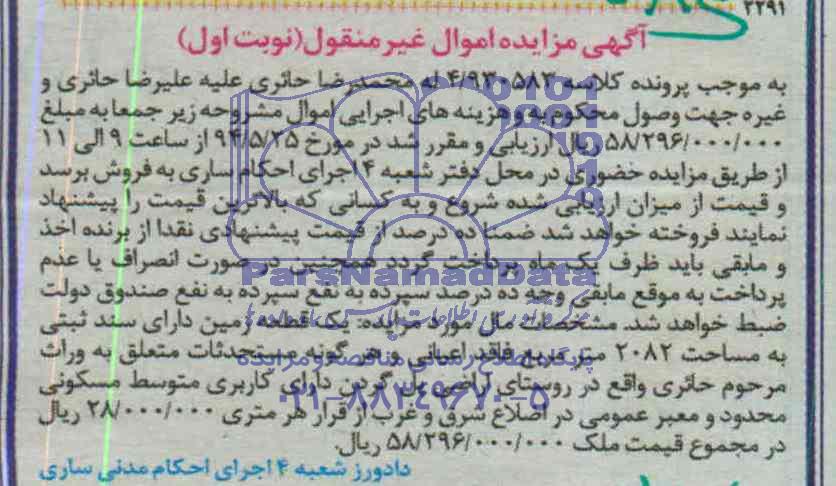 ۲۲۹۱
آگهی مزایده اموال غیر منقول(نوبت اول)
به موجب پرونده کلاسه ۴/۹۳۰۵۸۳ له محمدرضا حائری علیه علیرضا حائری و
غیره جهت وصول محکوم به و هزینه های اجرایی اموال مشروحه زیر جمعا به مبلغ
۵۸/۲۹۶/۰۰۰/۰۰۰ ریال ارزیابی و مقرر شد در مورخ ۹۴/۵/۲۵ از ساعت ۹ الی ۱۱
از طریق مزایده حضوری در محل دفتر شعبه ۴ اجرای احکام ساری به فروش برسد
و قیمت از میزان ارزیابی شده شروع و به کسانی که بالاترین قیمت را پیشنهاد
نمایند فروخته خواهد شد ضمنا ده درصد از قیمت پیشنهادی نقدا از برنده اخذ
و مابقی باید ظرف یک ماه پرداخت گردد همچنین در صورت انصراف یا عدم
ParsNamadData
پرداخت به موقع مابقی وجه ده درصد سپرده به نفع سپرده به نفع صندوق دولت
ضبط خواهد شد. مشخصات مال مورد مزایده: یک قطعه زمین دارای سند ثبتی
به مساحت ۲۰۸۲ متر مربع فاقد اعیانی و هر گونه مستحدثات متعلق به وراث
پایگاه اطلاع رسانی مناقصه و مزایده
مرحوم حائری واقع در روستای اراضی پل گردن دارای کاربری متوسط مسکونی
۰۲۱-۸۸۳۴۹۶۷۰-۵
محدود و معبر عمومی در اضلاع شرق و غرب از قرار هر متری ۲۸/۰۰۰/۰۰۰ ریال
در مجموع قیمت ملک ۵۸/۲۹۶/۰۰۰/۰۰۰ ریال.
دادورز شعبه ۴ اجرای احکام مدنی ساری